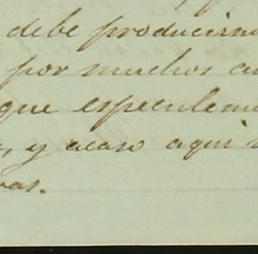 debe producirnos
por muchos
que especulemos
, y acaso aqui
vas.